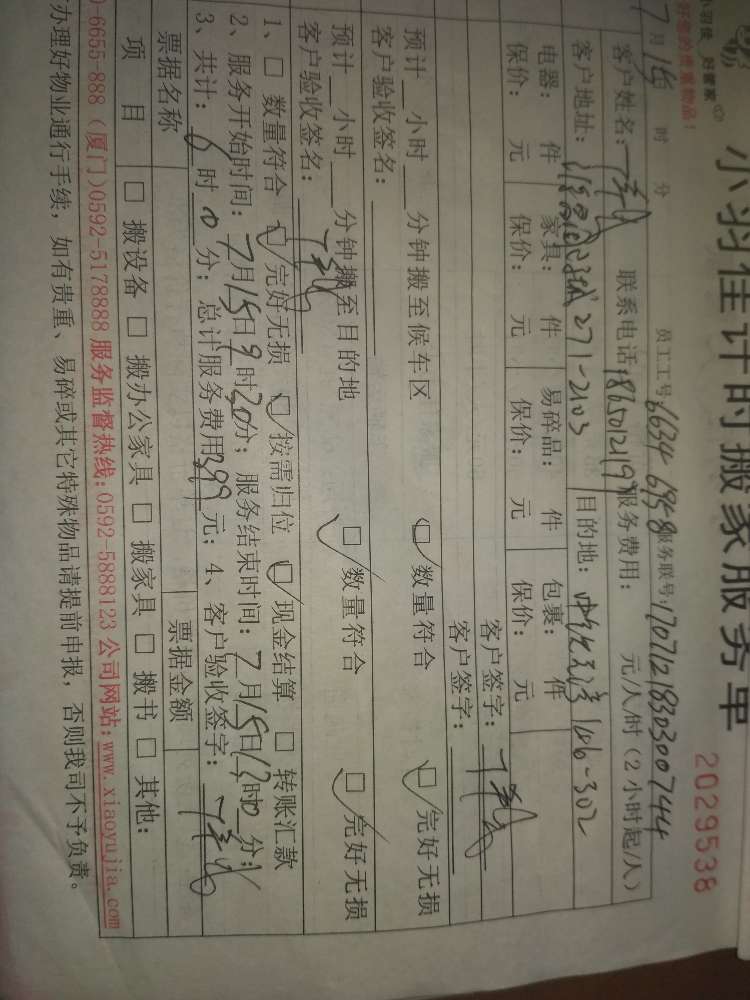 小羽佳 好管家
好您的贵重物品！
小羽佳计时搬家服务单
2029538
7月15日 时 分 员工工号:6634 6958 服务联号:17071218303007444
客户姓名: 联系电话:18650121197 服务费用: 元/人/时（2小时起/人）
客户地址: 271-2103 目的地: 106-302
电器: 件 家具: 件 易碎品: 件 包裹: 件
保价: 元 保价: 元 保价: 元 保价: 元
客户签字:
客户签字:
预计 小时 分钟搬至候车区 ☑数量符合 ☑完好无损
客户验收签名:
预计 小时 分钟搬至目的地 ☑数量符合 ☑完好无损
客户验收签名:
1、□ 数量符合 ☑ 完好无损 ☑ 按需归位 ☑ 现金结算 □ 转账汇款
2、服务开始时间: 7月15日9时30分; 服务结束时间: 7月15日 时 0 分;
3、共计: 6时0分; 总计服务费用399元; 4、客户验收签字:
票据名称 票据金额
项 目 □ 搬设备 □ 搬办公家具 □ 搬家具 □ 搬书 □ 其他:
0-6655-888（厦门）0592-5178888 服务监督热线:0592-5888123 公司网站:www.xiaoyujia.com
办理好物业通行手续，如有贵重、易碎或其它特殊物品请提前申报，否则我司不予负责。